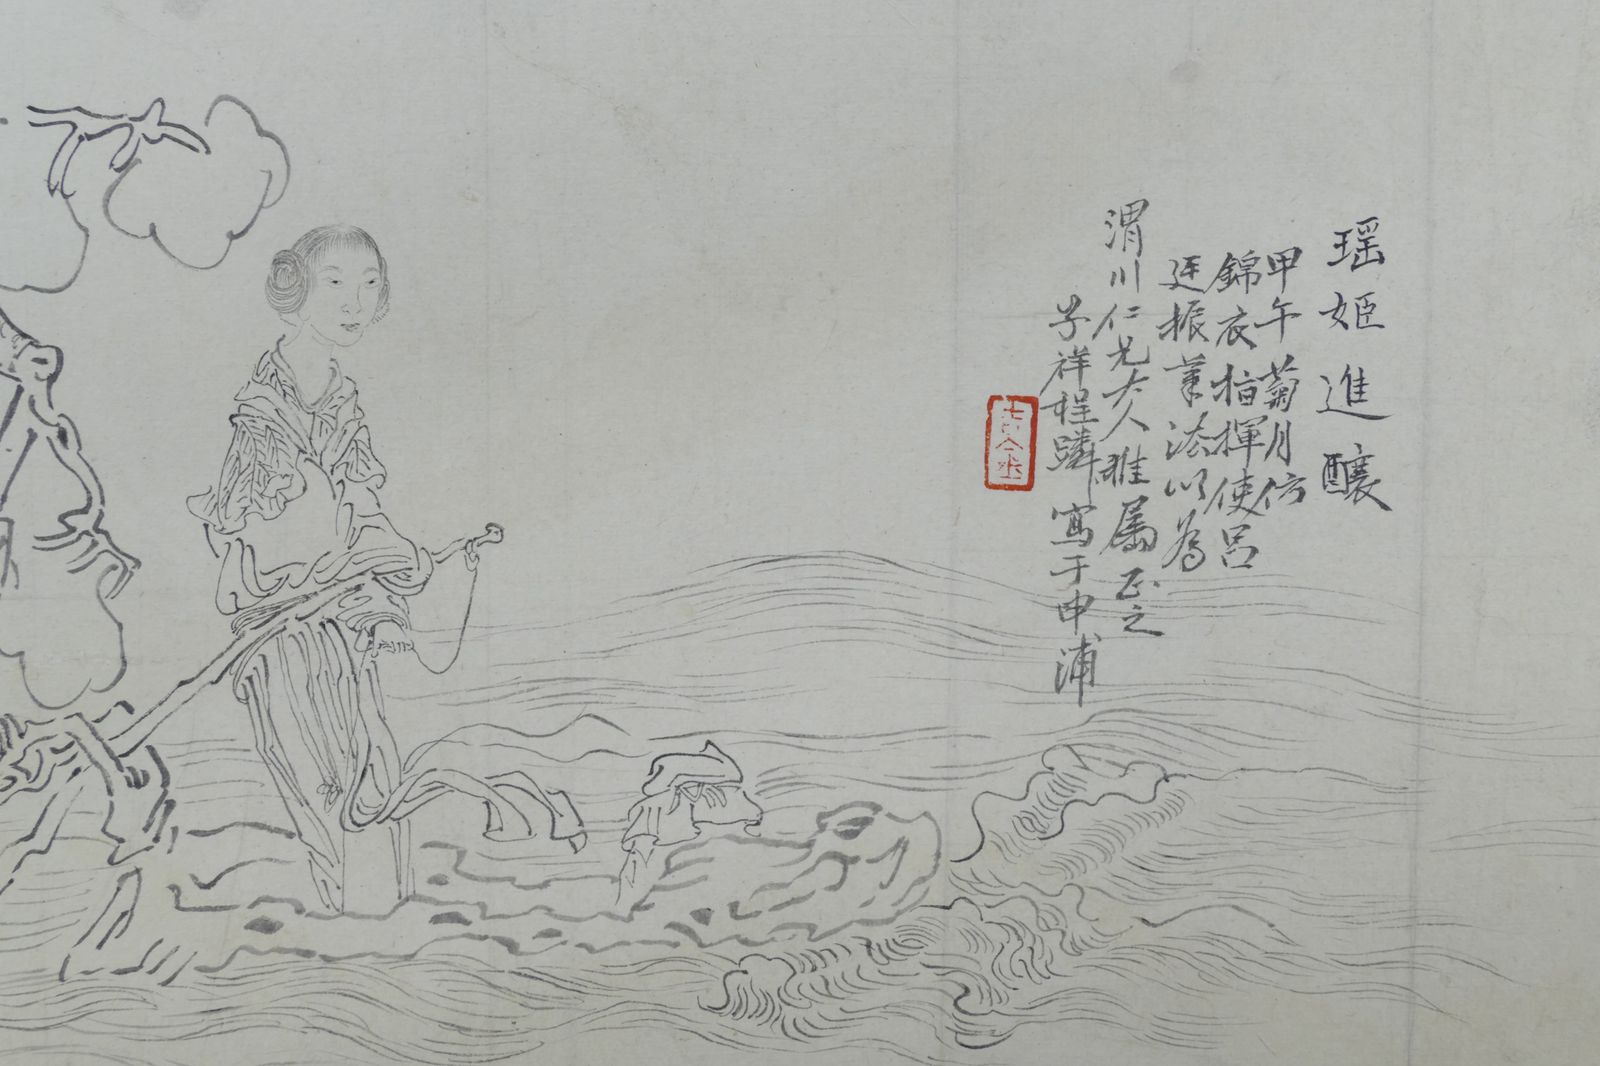 瑶姬進釀
甲午菊月仿
錦衣指揮使呂
廷振筆法以為
渭川仁兄大人雅属正之
子祥程璘寫于申浦